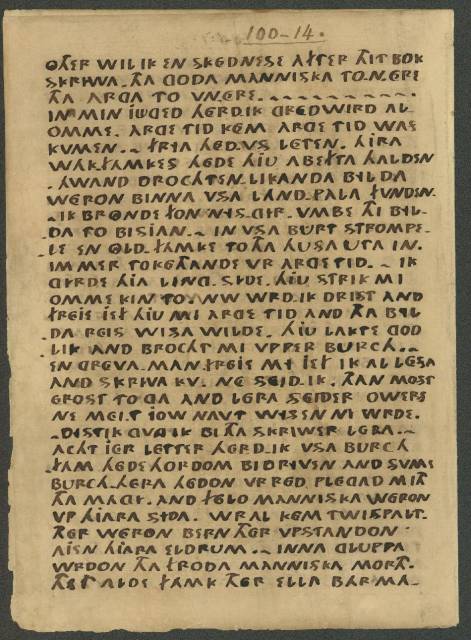 100-14.
OTHER WIL IK EN SKEDNESE AFTER THIT BOK
SKRIWA. THA GODA MANNISKA TO.N.GRE
THA ARGA TO VN.ERE.
IN MIN IUGED HERD.IK GREDWIRD AL
OMME. ARGE TID KEM ARGE TID WAS
KVMEN. FRYA HED.VS LETEN. HIRA
WAK.FAMKES HEDE HIU ABEFTA HALDEN
HWAND DROCHTEN.LIKANDA BYLDA
WERON BINNA VSA LAND.PALA FVNDEN.
IK BRONDE FON NYS.GIR. VMBE THI BYL-
DA TO BISIAN. IN VSA BURT STROMPE-
LE EN OLD.FAMKE TO THA HUSA UTA IN.
IMMER TO KETHANDE VR ARGE TID. IK
GYRDE HIA LING.SIDE. HIU STRIK MI
OMME KIN TO. NW WRD.IK DRIST AND
FREIS IEF HIU MI ARGE TID AND THA BYL-
DA REIS WISA WILDE. HIU LAKTE GOD
LIK AND BROCHT MI VPPER BURCH.
EN GREVA.MAN.FREIS MY IEF IK AL LESA
AND SKRIWA KV. NE SEID.IK. THAN MOST
EROST TO GA AND LERA SEIDER OWERS
NE MEI.T IOW NAVT WISEN NI WRDE.
DISTIK GVNG IK BI THA SKRIWER LERA.
ACHT IER LETTER HERD.IK VSA BURCH
FAM HEDE HORDOM BIDRIVEN AND SVME
BURCH.HERA HEDON VRRED PLEGAD MITH
THA MAGI. AND FELO MANNISKA WERON
VP HIARA SIDA. WRAL KEM TWISPALT.
THER WERON BERN THER VPSTANDON
AIEN HIARA ELDRUM. INNA GLUPPA
WRDON THA FRODA MANNISKA MORTH.
THET ALDE FAMK THER ELLA BARMA-